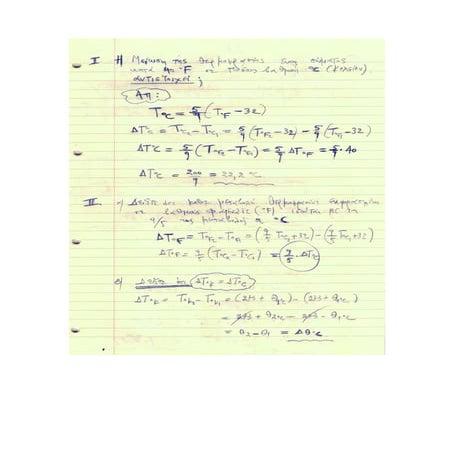 I Η Μείωση της θερμοκρασίας ενός σώματος
κατά 40 °F σε πόσους βαθμούς °C (Κελσίου)
αντιστοιχεί ;
Απ:
T°C = 5/9 (T°F - 32)
ΔT°C = T°C2 - T°C1 = 5/9 (T°F2 - 32) - 5/9 (T°F1 - 32)
ΔT°C = 5/9 (T°F2 - T°F1) = 5/9 ΔT°F = 5/9 · 40
ΔT°C = 200/9 = 22,2 °C
II α) Δείξτε ότι κάθε μεταβολή θερμοκρασίας
σε βαθμούς (°F) ισούται με τα
9/5 της μεταβολής σε °C
ΔT°F = T°F2 - T°F1 = (9/5 T°C2 + 32) - (9/5 T°C1 + 32)
ΔT°F = 9/5 (T°C2 - T°C1) = 9/5 · ΔT°C
β) Δείξτε ότι ΔT°K = ΔT°C
ΔT°K = T°K2 - T°K1 = (273 + θ2°C) - (273 + θ1°C)
= 273 + θ2°C - 273 - θ1°C
= θ2 - θ1 = Δθ°C